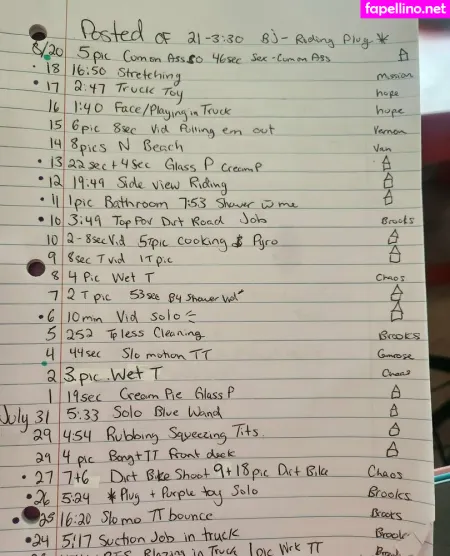 fapellino.net
Posted OF 21-3:30 Bj-Riding Plug *
8/20 5pic Cum on Ass 50 46sec Sex-Cum on Ass
18 16:50 Stretching mission
17 2:47 Truck Toy hope
16 1:40 Face/Playing in Truck hope
15 6pic 8sec Vid Pulling em out Vernon
14 8pics N Beach Van
13 22sec+4sec Glass P Cream P
12 19:49 Side view Riding
11 1pic Bathroom 7:53 Shower w me
10 3:49 Top for Dirt Road Job Brooks
10 2-8sec Vid 5 pic cooking & Pyro
9 8sec T vid 1T pic
8 4 Pic Wet T Chaos
7 2 T pic 53sec B4 Shower Vid
6 10min Vid Solo
5 252 Topless Cleaning Brooks
4 44sec Slo motion TT
2 3.pic.Wet T Chaos
1 19sec Cream Pie Glass P
July 31 5:33 Solo Blue Wand
29 4:54 Rubbing Squeezing Tits.
29 4 pic Bong+TT Front deck
27 7+6 Dirt Bike Shoot 9+18pic Dirt Bike Chaos
26 5:24 *Plug + Purple toy Solo Brooks
25 16:20 Slomo TT bounce Brooks
24 5:17 Suction Job in truck Brooks
Blazing in Truck 1pic Wrk TT